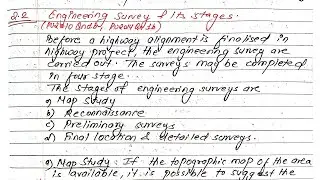 2.2 Engineering Survey & Its stages.
Before a highway alignment is finalised in
highway project, the engineering survey are
carried out. The surveys may be completed
in four stage.
The stages of engineering surveys are
a) Map study
b) Reconnaissance
c) Preliminary surveys
d) Final location & detailed surveys.
a) Map Study : If the topographic map of the area
is available, it is possible to suggest the